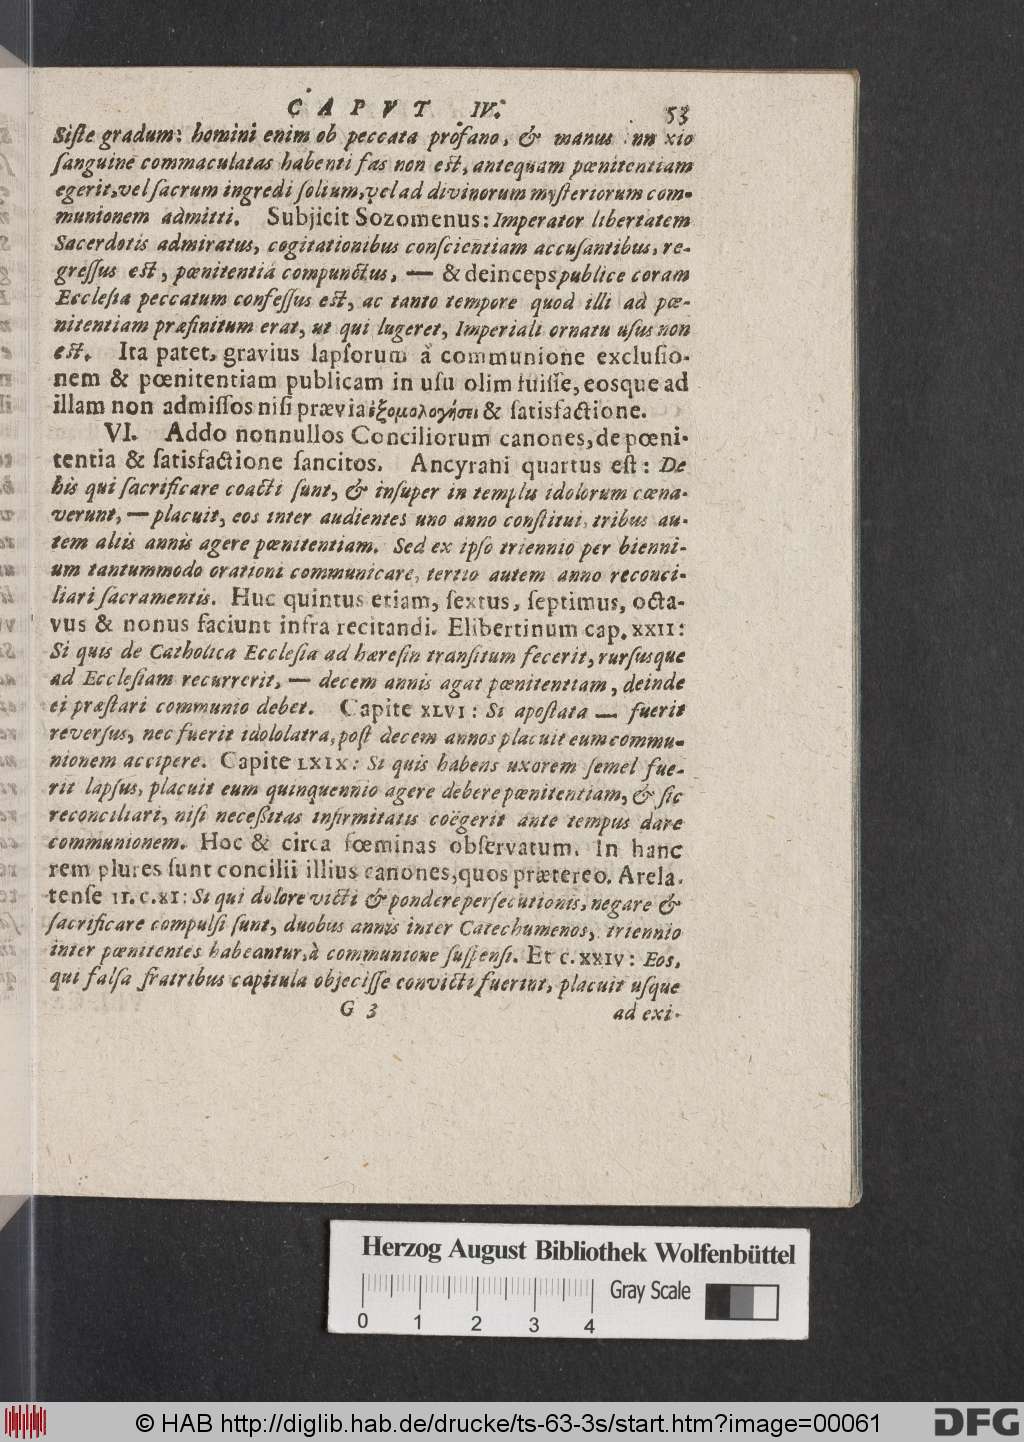 CAPVT IV. 53
Siſte gradum: homini enim ob peccata profano, & manus inn xio
ſanguine commaculatas habenti fas non eſt, antequam pœnitentiam
egerit, vel ſacrum ingredi ſolium, vel ad divinorum myſteriorum com-
munionem admitti. Subjicit Sozomenus: Imperator libertatem
Sacerdotis admiratus, cogitationibus conſcientiam accuſantibus, re-
greſſus eſt, pœnitentia compunctus, — & deinceps publice coram
Eccleſia peccatum confeſſus eſt, ac tanto tempore quod illi ad pœ-
nitentiam præfinitum erat, ut qui lugeret, Imperiali ornatu uſus non
eſt. Ita patet, gravius lapſorum à communione excluſio-
nem & pœnitentiam publicam in uſu olim fuiſſe, eosque ad
illam non admiſſos niſi prævia ἐξομολογήσει & ſatisfactione.
VI. Addo nonnullos Conciliorum canones, de pœni-
tentia & ſatisfactione ſancitos. Ancyrani quartus eſt: De
his qui ſacrificare coacti ſunt, & inſuper in templis idolorum cœna-
verunt, — placuit, eos inter audientes uno anno conſtitui, tribus au-
tem aliis annis agere pœnitentiam. Sed ex ipſo triennio per bienni-
um tantummodo orationi communicare, tertio autem anno reconci-
liari ſacramentis. Huc quintus etiam, ſextus, ſeptimus, octa-
vus & nonus faciunt infra recitandi. Elibertinum cap. XXII:
Si quis de Catholica Eccleſia ad hæreſin tranſitum fecerit, rurſusque
ad Eccleſiam recurrerit, — decem annis agat pœnitentiam, deinde
ei præſtari communio debet. Capite XLVI: Si apoſtata — fuerit
reverſus, nec fuerit idololatra, poſt decem annos placuit eum commu-
nionem accipere. Capite LXIX: Si quis habens uxorem ſemel fue-
rit lapſus, placuit eum quinquennio agere debere pœnitentiam, & ſic
reconciliari, niſi neceſſitas infirmitatis coëgerit ante tempus dare
communionem. Hoc & circa fœminas obſervatum. In hanc
rem plures ſunt concilii illius canones, quos prætereo. Arela-
tenſe II. c. XI: Si qui dolore victi & pondere perſecutionis, negare &
ſacrificare compulſi ſunt, duobus annis inter Catechumenos, triennio
inter pœnitentes habeantur, à communione ſuſpenſi. Et c. XXIV: Eos,
qui falſa fratribus capitula objeciſſe convicti fuerint, placuit uſque
G 3 ad exi-
Herzog August Bibliothek Wolfenbüttel
Gray Scale
0 1 2 3 4
© HAB http://diglib.hab.de/drucke/ts-63-3s/start.htm?image=00061
DFG